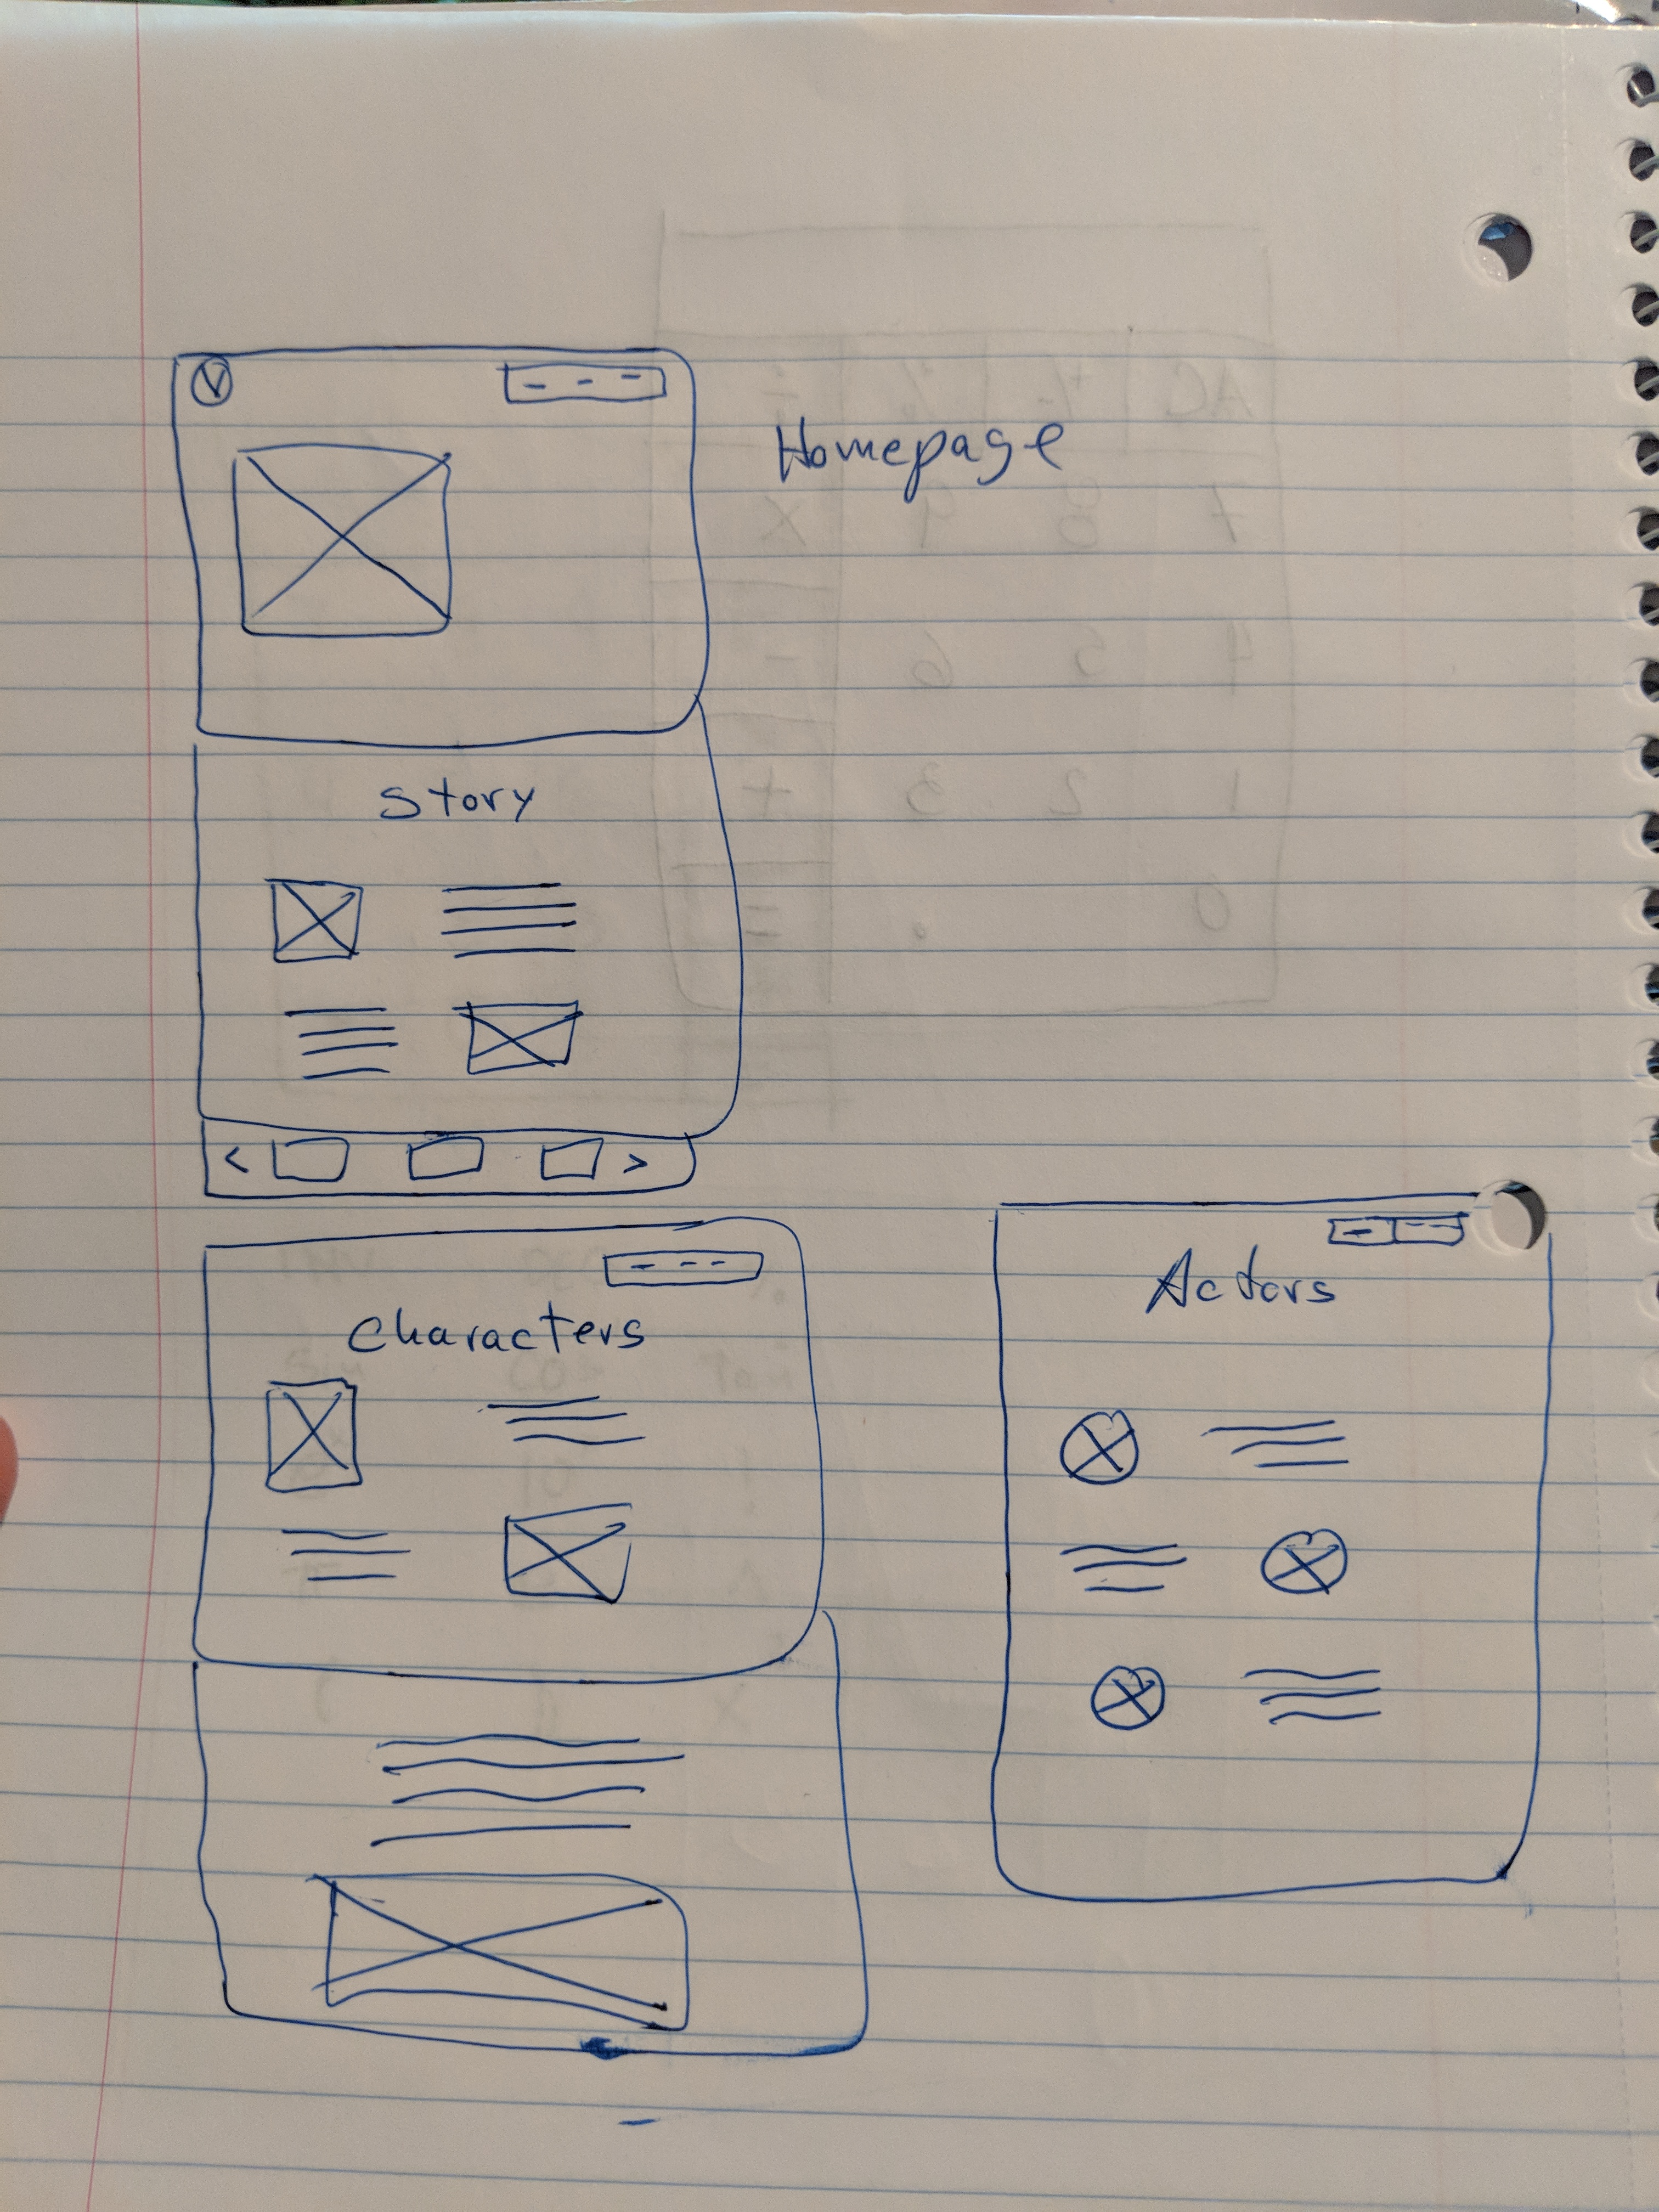 V
Homepage
Story
< >
Characters
Actors